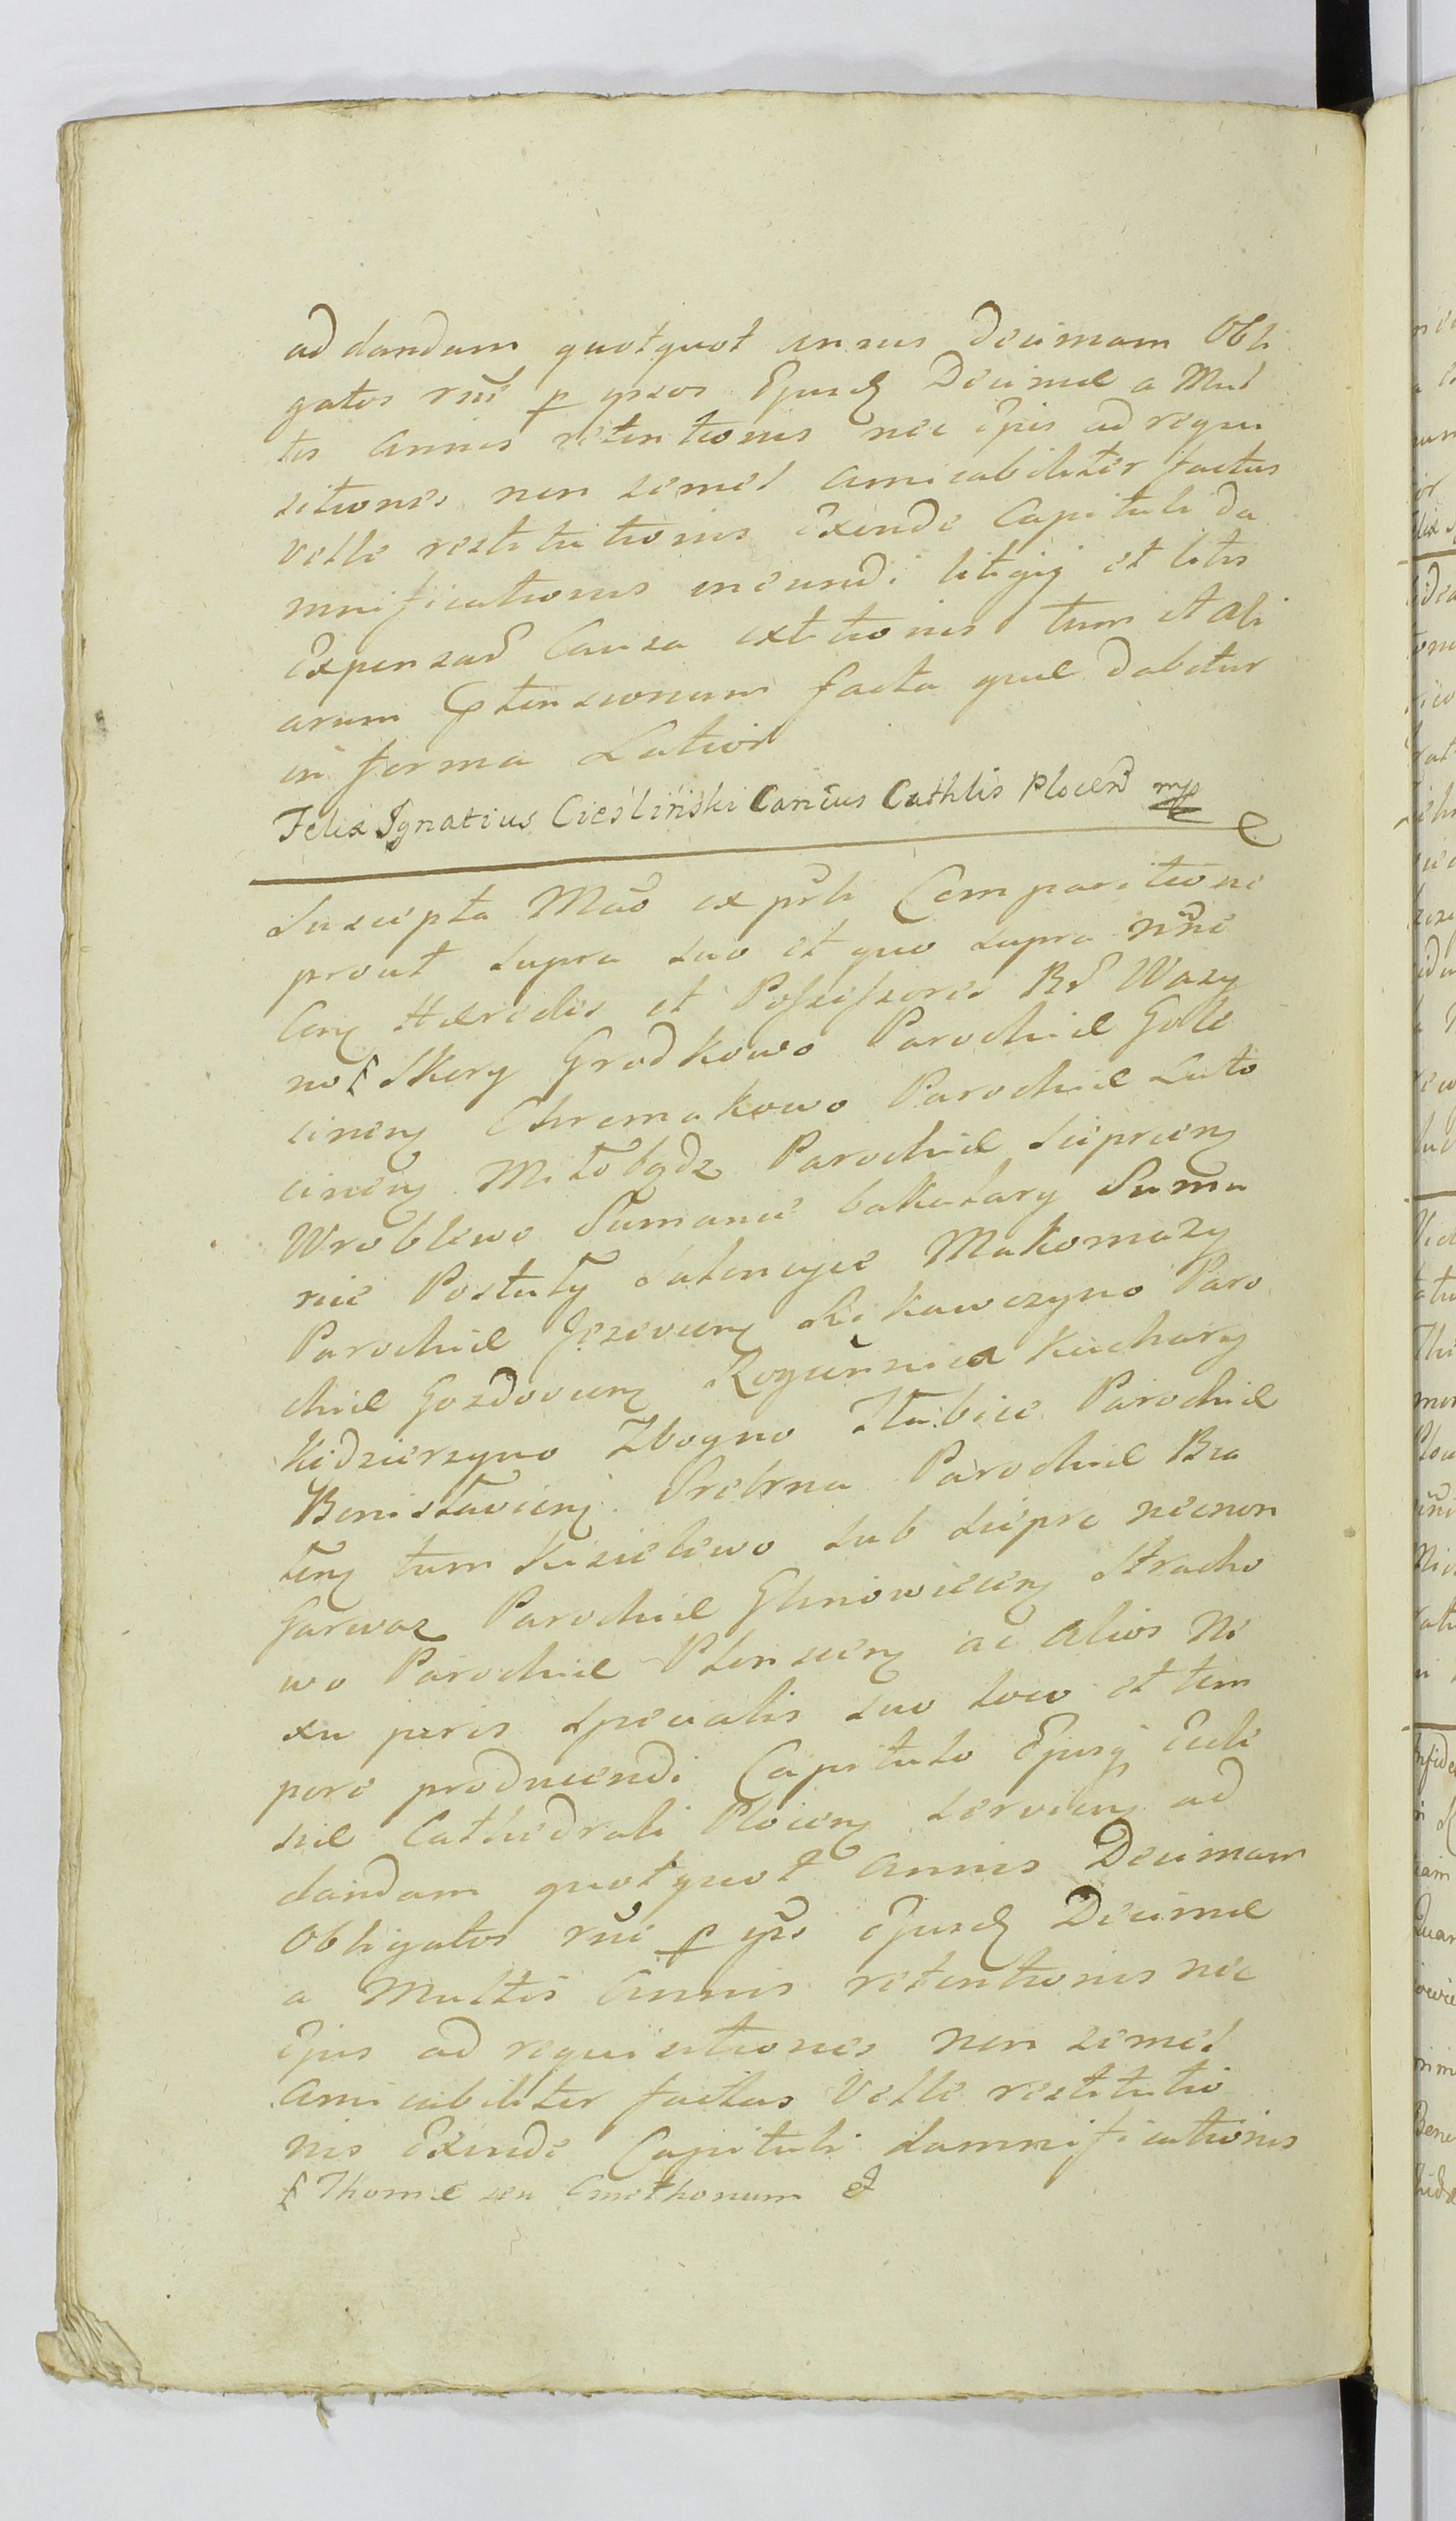 ad dandam quotquot annis Decimam Obli
gatos rnẽ p ipsos Ejusd Decimæ a Mul
tis annis retentionis nec Ejus ad requi
sitiones non semel amicabiliter factas
velle restitutionis Exinde Capituli da
mnificationis ineundi litigij et litis
Expensar Causa extitionis tum et ali
arum Ptensionum facta quæ dabitur
in forma Latiori
Felix Ignatius Cieśliński Canćus Cathlis Plocen mp
Suscepta Mão ex prli Comparitione
prout supra suo et quo supra nñe
Cong Hæredes et Possessores Bĩ Wazy
no Skory Grodkowo Parochiæ Gole
cineng Chromakowo Parochiæ Luto
cineng Miłobędz Parochiæ Sieprceng
Wroblewo Sumanie bakalary Suma
nie Postuły Salencyie Makomazy
Parochiæ Jezevieng Rękawczyno Paro
chiæ Gozdovieng Rogieńnica Kuchary
Kędzierzyno Zbogno Słubice Parochiæ
Bonisłavieng Srebrna Parochiæ Bza
teng tum Kisielewo sub Siepre necnon
Garwaz Parochiæ Glinowieceng Stracho
wo Parochiæ Płonsceng ac alios Ne
xu juris specialis suo loco et tem
pore producendi Capitulo Ejusq Eccle
siæ Cathedrali Ploceng servieng ad
dandam quotquot annis Decimam
Obligatos rñe p ipõs Ejusd Decimæ
a Multis Annis retentionis nec
Ejus ad requisitiones non semel
amicabiliter factas Velle restitutio
nis Exinde Capituli damnificationis
Thomæ seu Cmethonum et